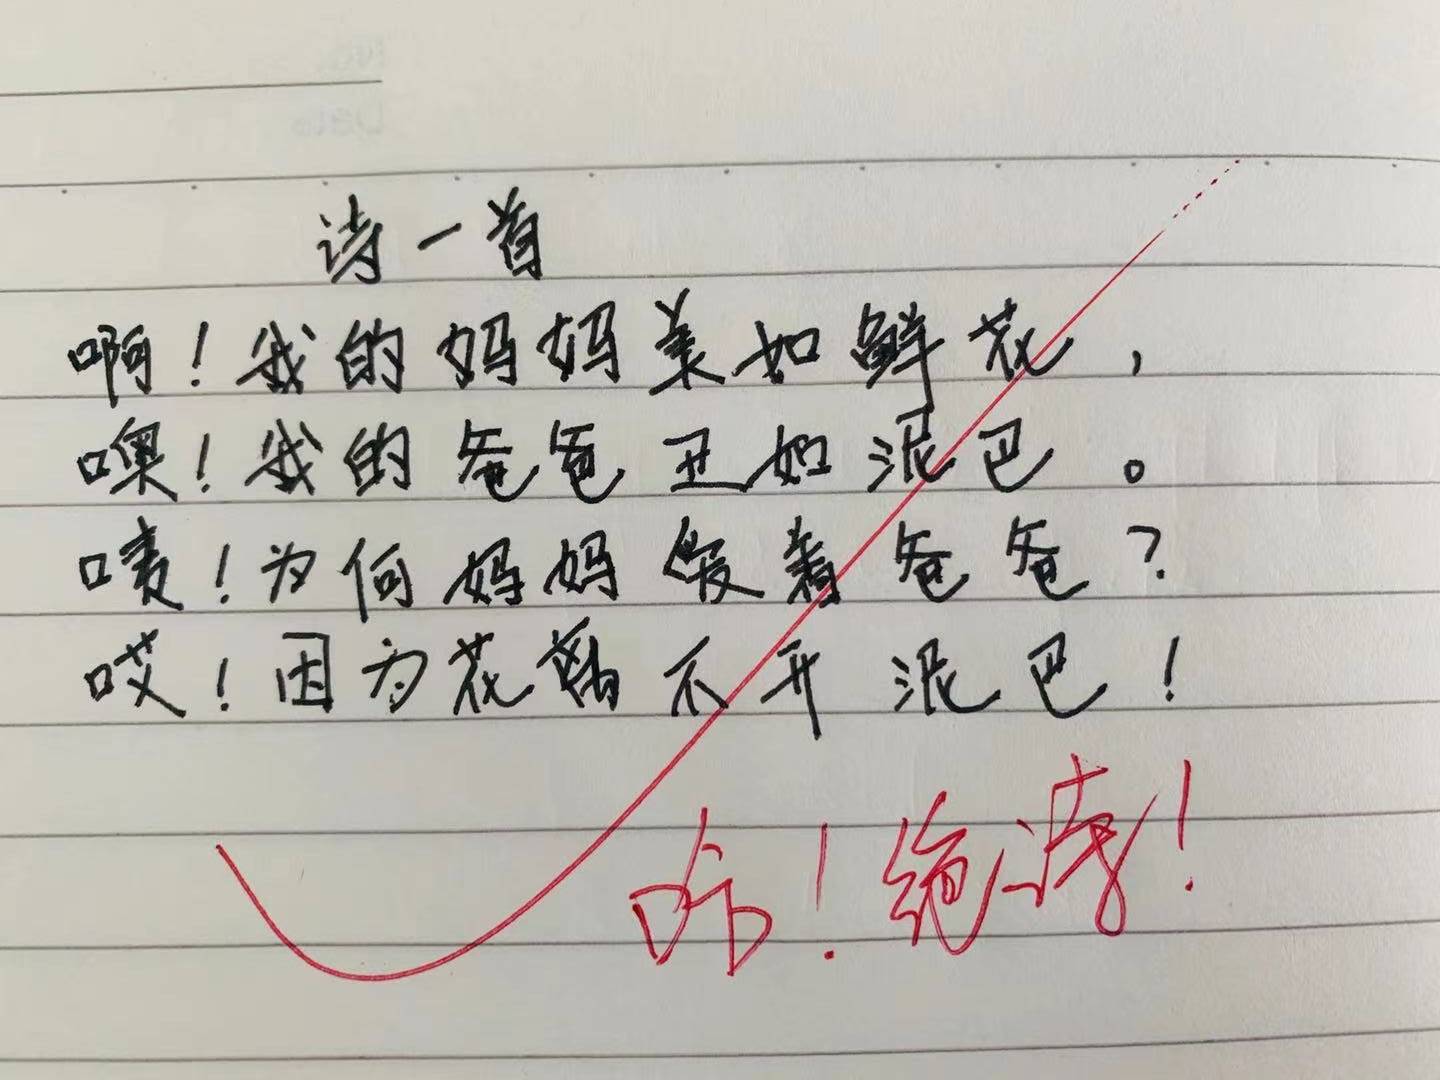 诗一首
啊!我的妈妈美如鲜花,
噢!我的爸爸丑如泥巴。
唛!为何妈妈爱着爸爸?
哎!因为花离不开泥巴!
哈!绝诗!